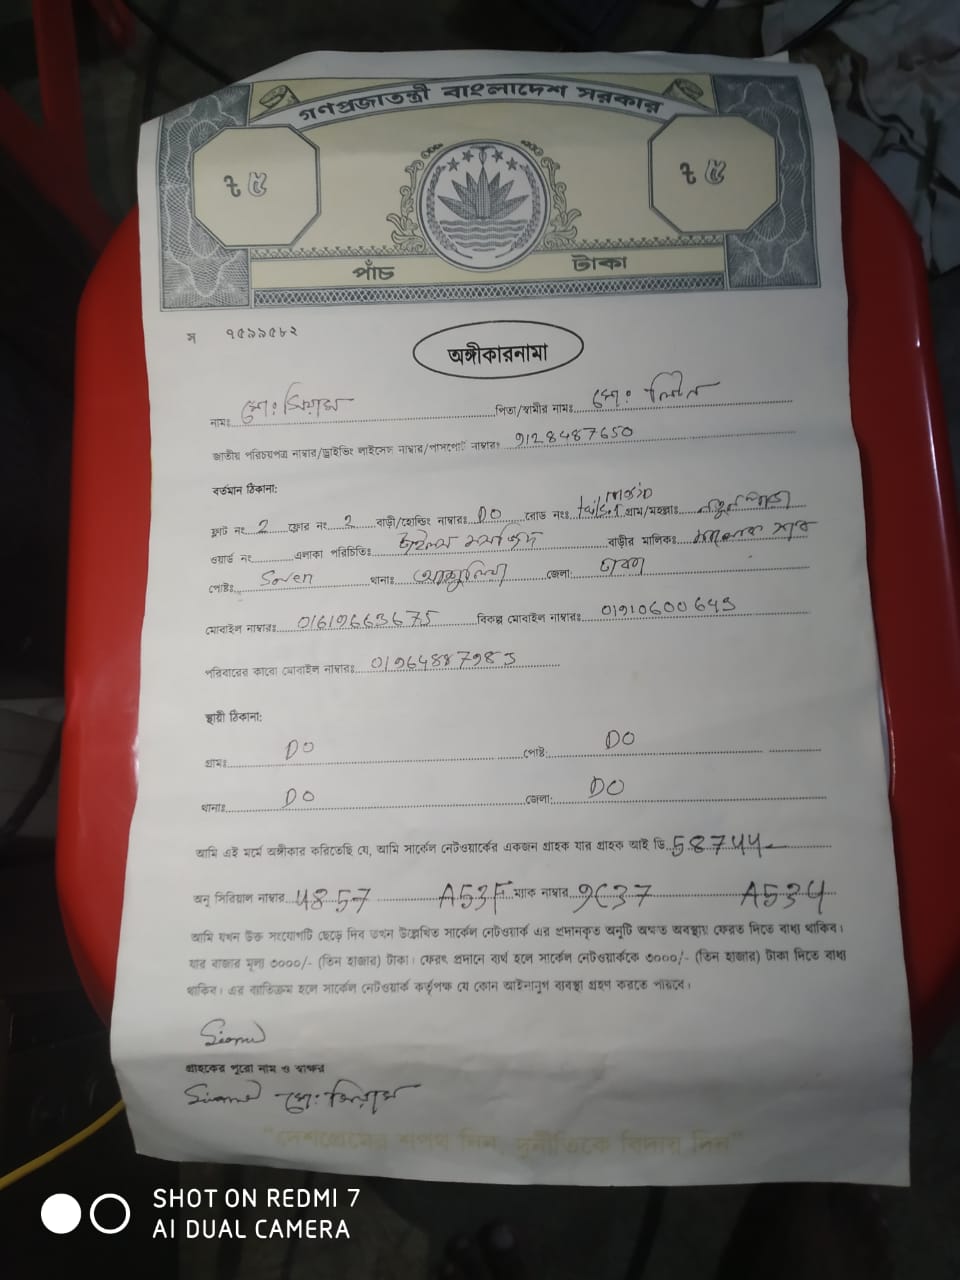 গণপ্রজাতন্ত্রী বাংলাদেশ সরকার
ট ৫ ট ৫
পাঁচ টাকা
স ৭৫৯৯৫৮২
অঙ্গীকারনামা
নামঃ মো: সিয়াম পিতা/স্বামীর নামঃ মো: লিটন
জাতীয় পরিচয়পত্র নাম্বার/ড্রাইভিং লাইসেন্স নাম্বার/পাসপোর্ট নাম্বারঃ 9128487650
বর্তমান ঠিকানা:
ফ্লাট নং 2 ফ্লোর নং 2 বাড়ী/হোল্ডিং নাম্বারঃ DO রোড নং গ্রাম/মহল্লাঃ
ওয়ার্ড নং এলাকা পরিচিতিঃ বাড়ীর মালিকঃ
পোষ্টঃ Saven থানাঃ আশুলিয়া জেলাঃ ঢাকা
মোবাইল নাম্বারঃ 01619663675 বিকল্প মোবাইল নাম্বারঃ 01910600649
পরিবারের কারো মোবাইল নাম্বারঃ
স্থায়ী ঠিকানা:
গ্রামঃ DO পোষ্ট: DO
থানাঃ DO জেলা: DO
আমি এই মর্মে অঙ্গীকার করিতেছি যে, আমি সার্কেল নেটওয়ার্কের একজন গ্রাহক যার গ্রাহক আই ডি 58744
অনু সিরিয়াল নাম্বার 4857 A53F ম্যাক নাম্বার 9C37 A534
আমি যখন উক্ত সংযোগটি ছেড়ে দিব তখন উল্লেখিত সার্কেল নেটওয়ার্ক এর প্রদানকৃত অনুটি অক্ষত অবস্থায় ফেরত দিতে বাধ্য থাকিব।
যার বাজার মূল্য ৩০০০/- (তিন হাজার) টাকা। ফেরৎ প্রদানে ব্যর্থ হলে সার্কেল নেটওয়ার্ককে ৩০০০/- (তিন হাজার) টাকা দিতে বাধ্য
থাকিব। এর ব্যতিক্রম হলে সার্কেল নেটওয়ার্ক কর্তৃপক্ষ যে কোন আইনানুগ ব্যবস্থা গ্রহণ করতে পারবে।
গ্রাহকের পুরো নাম ও স্বাক্ষর
মো: সিয়াম
"দেশপ্রেমের শপথ নিন, দুর্নীতিকে বিদায় দিন"
SHOT ON REDMI 7
AI DUAL CAMERA